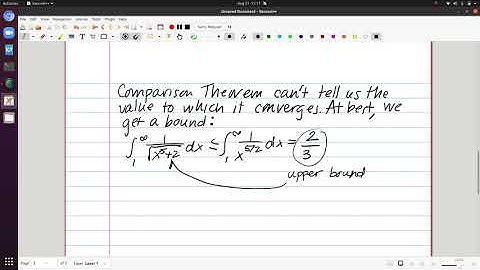 Comparison Theorem can't tell us the
value to which it converges. At best, we
get a bound:
∫₁^∞ 1/√(x⁵+2) dx ≤ ∫₁^∞ 1/x^(5/2) dx = 2/3
upper bound